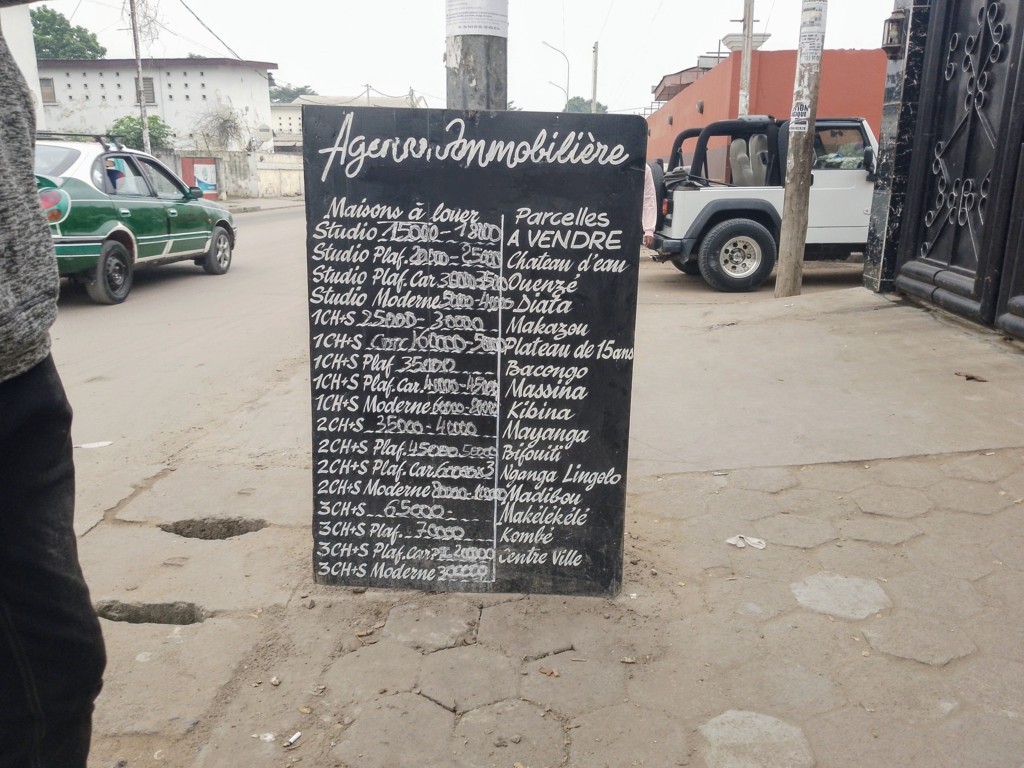 Agence Immobilière
Maisons à louer
Studio 15000 -
Studio Plaf. 20000 - 25000
Studio Plaf. Car.
Studio Moderne
1CH+S 25000 - 30000
1CH+S Carr
1CH+S Plaf 35000
1CH+S Plaf. Car. - 45000
1CH+S Moderne
2CH+S 35000 - 40000
2CH+S Plaf. 45000 - 50000
2CH+S Plaf. Car.
2CH+S Moderne
3CH+S 65000 -
3CH+S Plaf. 70000
3CH+S Plaf.
3CH+S Moderne
Parcelles
A VENDRE
Chateau d'eau
Ouenzé
Diata
Makazou
Plateau de 15ans
Bacongo
Massina
Kibina
Mayanga
Bifouiti
Nganga Lingelo
Madibou
Makélékélé
Kombé
Centre Ville